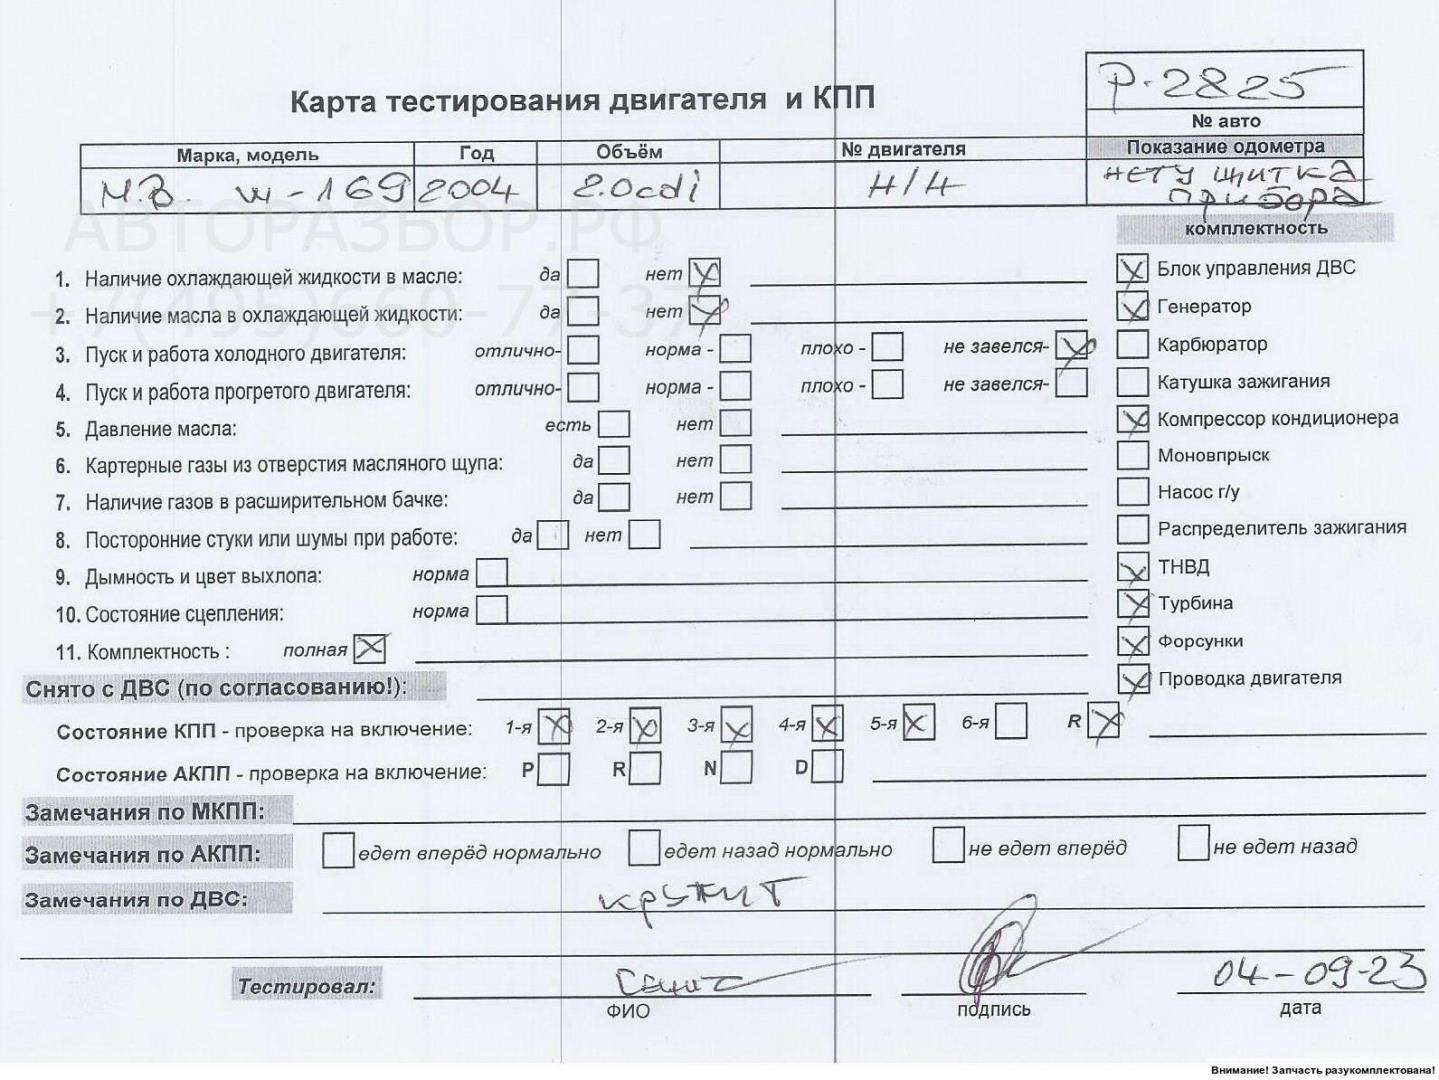 Р-2825
Карта тестирования двигателя и КПП
№ авто
Марка, модель Год Объём № двигателя Показание одометра
M.B. w-169 2004 2.0cdi Н/Н нету щитка
прибора
АВТОРАЗБОР.РФ
комплектность
+7(495)660-77-37
1. Наличие охлаждающей жидкости в масле: да нет
Блок управления ДВС
2. Наличие масла в охлаждающей жидкости: да нет
Генератор
3. Пуск и работа холодного двигателя: отлично- норма - плохо - не завелся-
Карбюратор
4. Пуск и работа прогретого двигателя: отлично- норма - плохо - не завелся-
Катушка зажигания
5. Давление масла: есть нет
Компрессор кондиционера
6. Картерные газы из отверстия масляного щупа: да нет
Моновпрыск
7. Наличие газов в расширительном бачке: да нет
Насос г/у
8. Посторонние стуки или шумы при работе: да нет
Распределитель зажигания
9. Дымность и цвет выхлопа: норма
ТНВД
10. Состояние сцепления: норма
Турбина
11. Комплектность : полная
Форсунки
Снято с ДВС (по согласованию!):
Проводка двигателя
Состояние КПП - проверка на включение: 1-я 2-я 3-я 4-я 5-я 6-я R
Состояние АКПП - проверка на включение: P R N D
Замечания по МКПП:
Замечания по АКПП: едет вперёд нормально едет назад нормально не едет вперёд не едет назад
Замечания по ДВС: кружит
Тестировал: 04-09-23
ФИО подпись дата
Внимание! Запчасть разукомплектована!